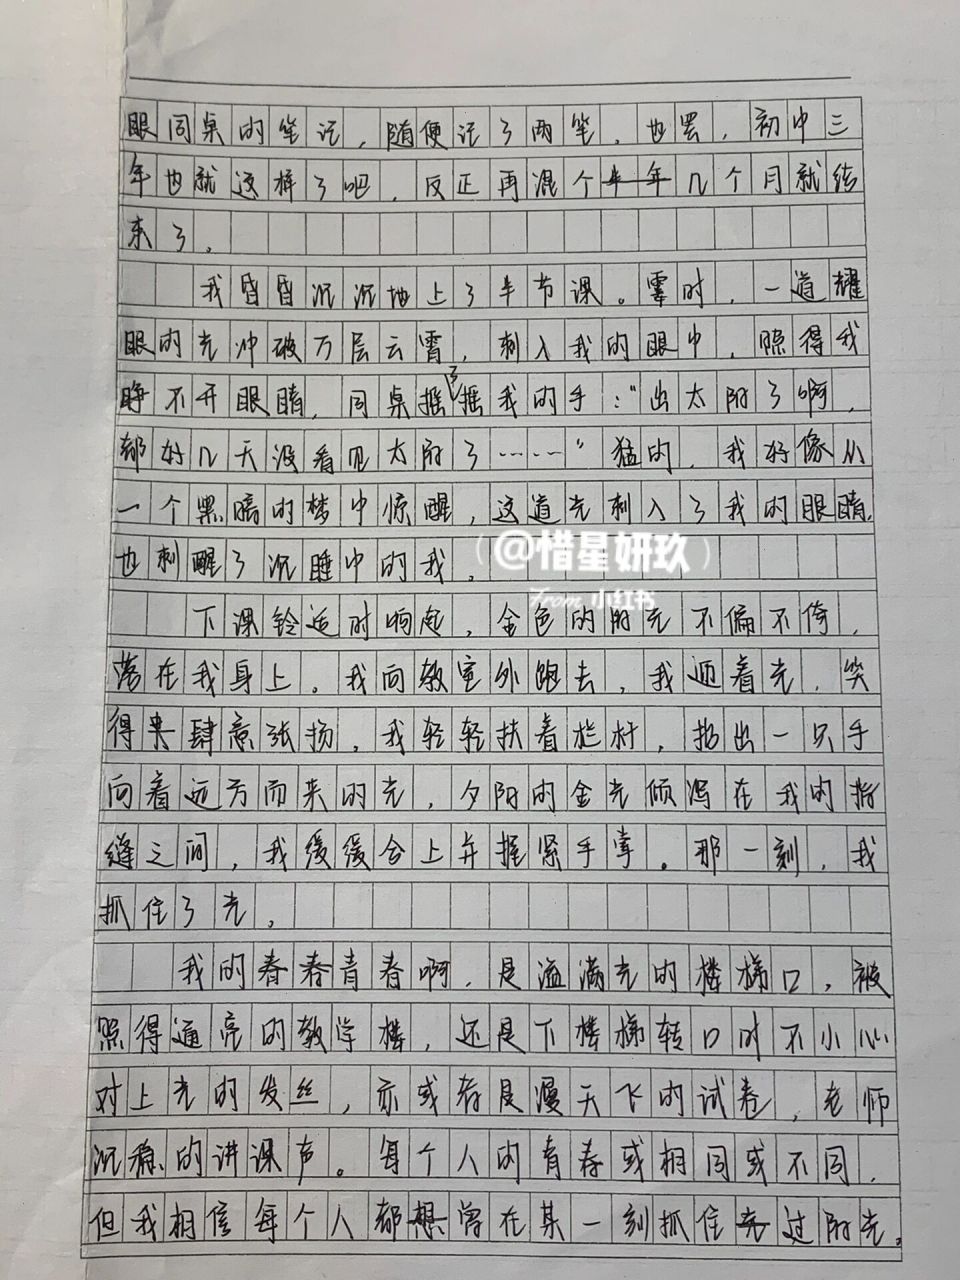 眼同桌的笔记，随便记了两笔，也罢，初中三
年也就这样了吧，反正再混个半年几个月就结
束了。
我昏昏沉沉地上了半节课。霎时，一道耀
眼的光冲破万层云霄，刺入我的眼中，照得我
睁不开眼睛，同桌摇了摇我的手：“出太阳了啊，
都好几天没看见太阳了……”猛的，我好像从
一个黑暗的梦中惊醒，这道光刺入了我的眼睛，
也刺醒了沉睡中的我。
@惜星妍玖
From 小红书
下课铃适时响起，金色的阳光不偏不倚，
落在我身上。我向教室外跑去，我迎着光，笑
得肆意张扬，我轻轻扶着栏杆，抬出一只手
向着远方而来的光，夕阳的金光倾泻在我的指
缝之间，我缓缓合上并握紧手掌。那一刻，我
抓住了光。
我的春春青春啊，是溢满光的楼梯口，被
照得通亮的教学楼，还是下楼梯转口时不小心
对上光的发丝，亦或者是漫天飞的试卷，老师
沉稳的讲课声。每个人的青春或相同或不同，
但我相信每个人都想曾在某一刻抓住光过阳光。